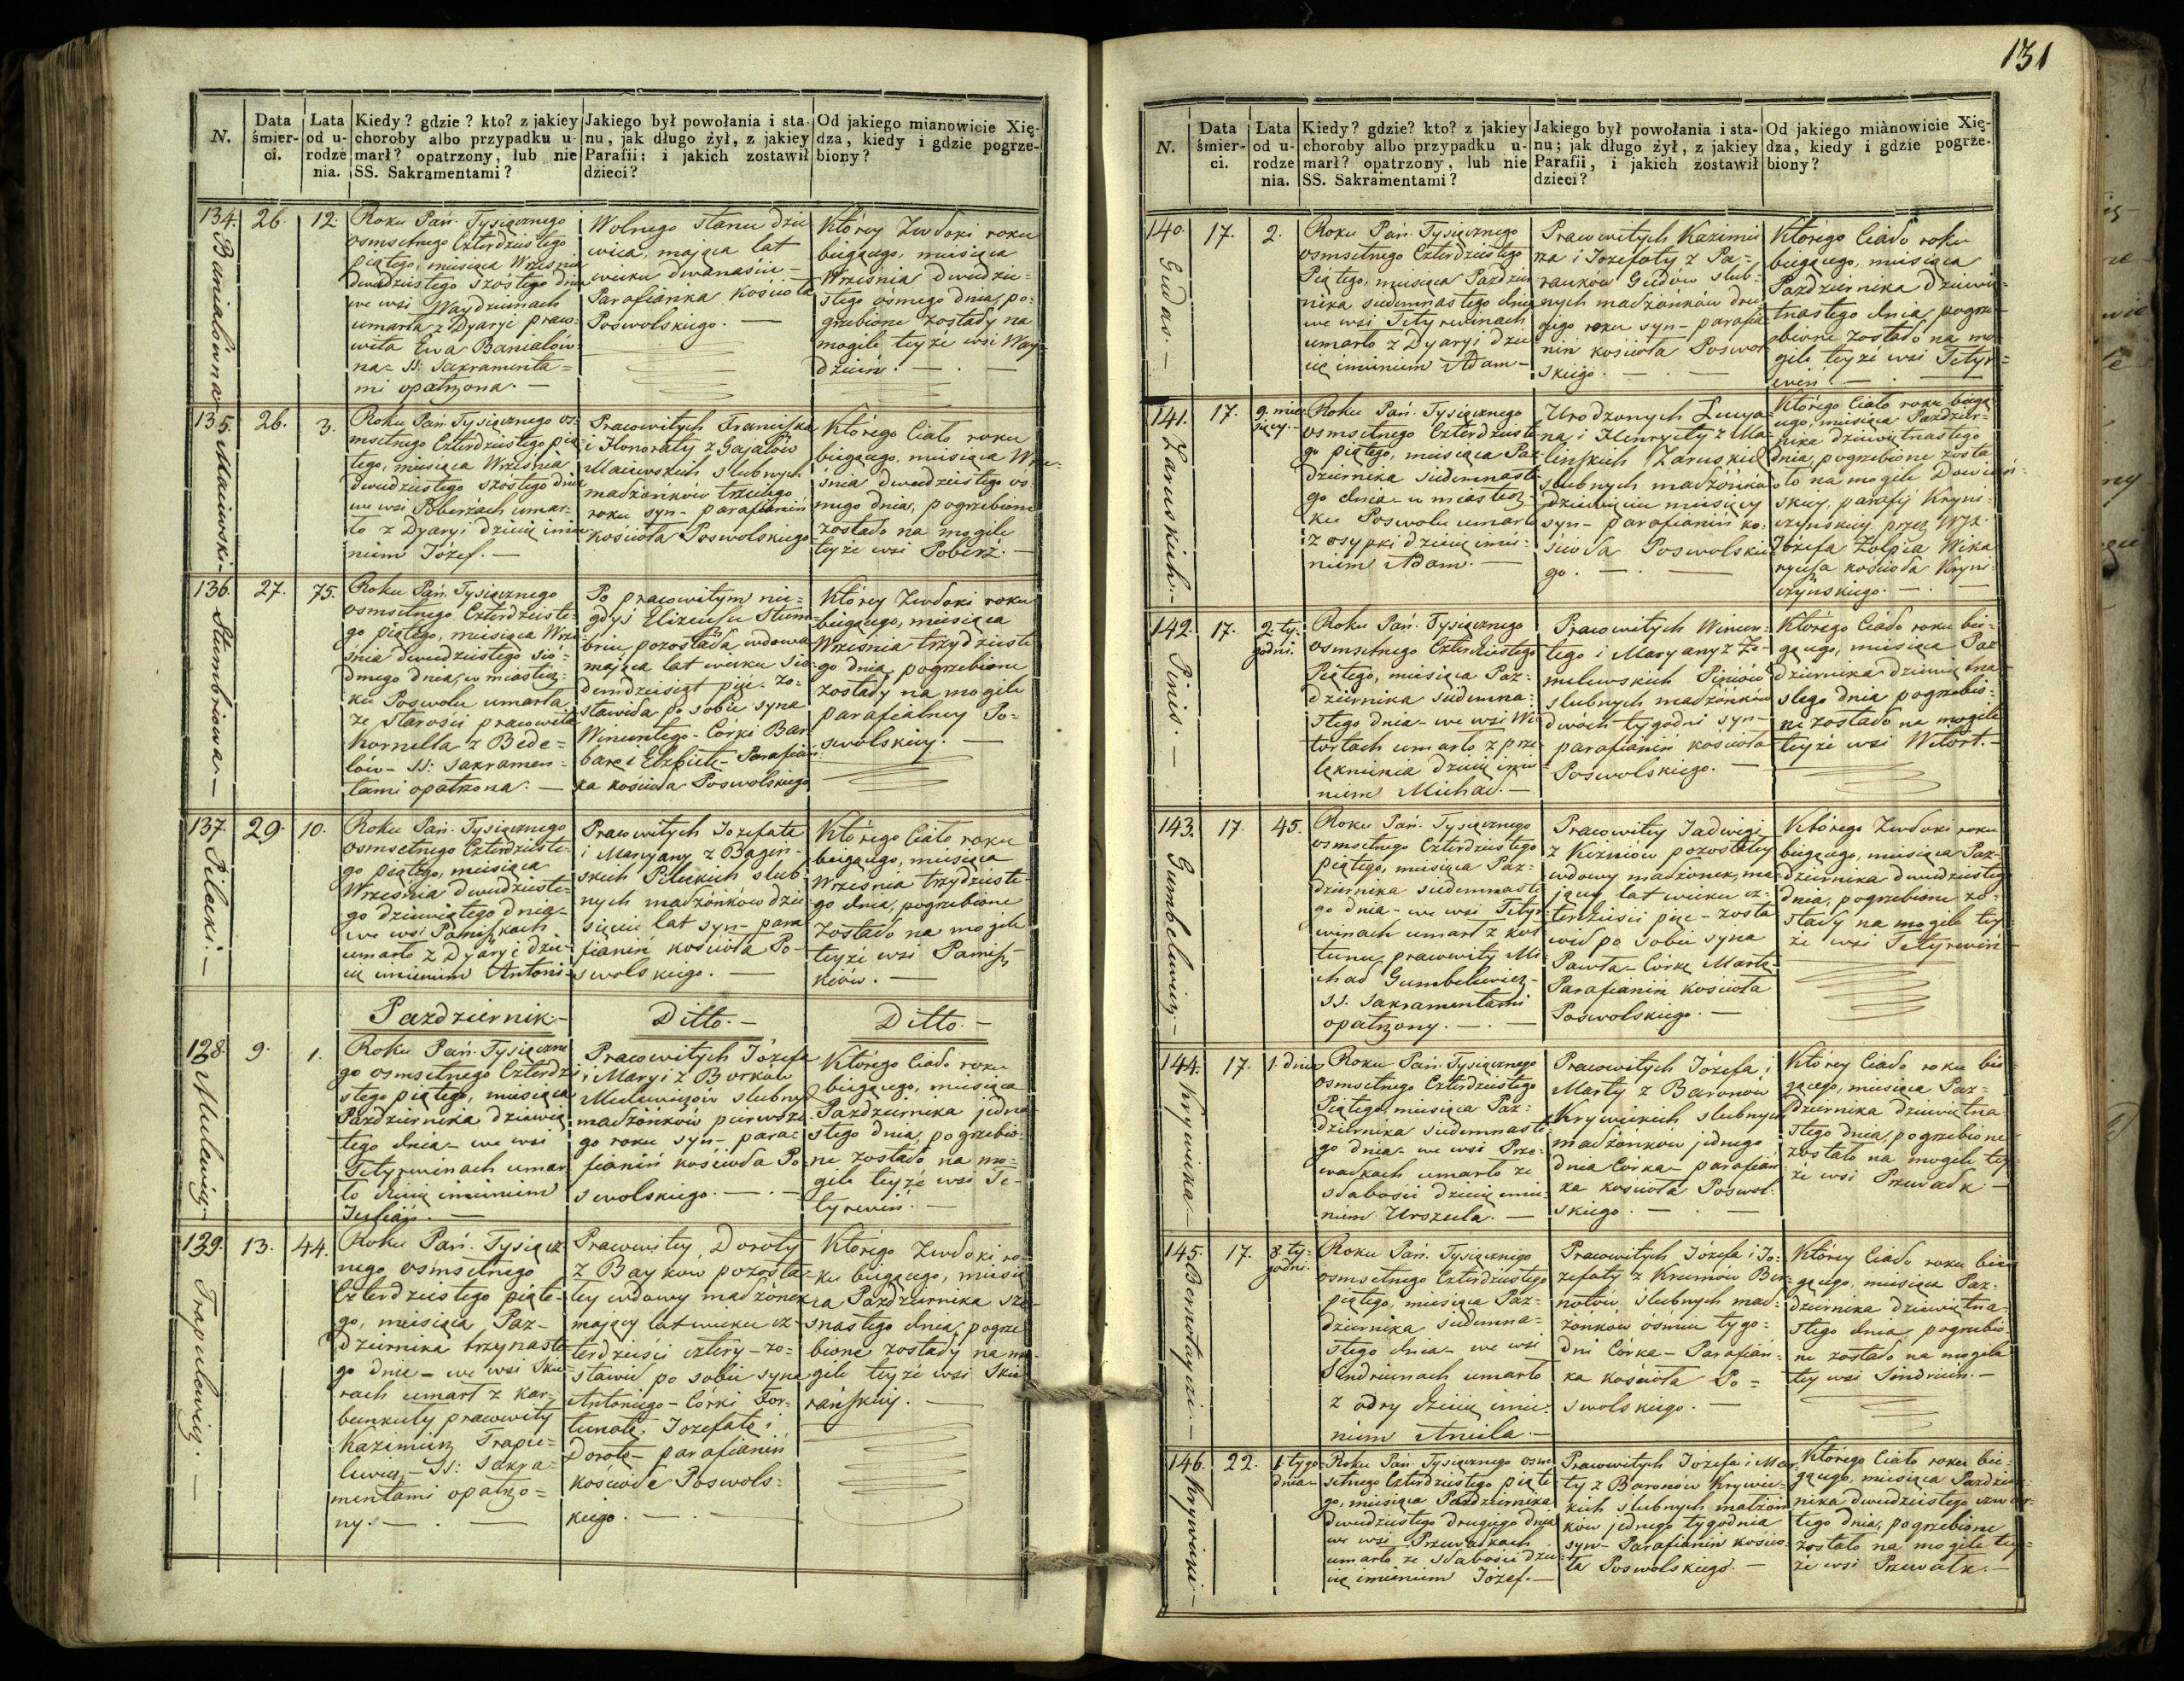 131
N.
Data śmierci.
Lata od urodzenia.
Kiedy? gdzie? kto? z jakiey
choroby albo przypadku u-
marł? opatrzony, lub nie
SS. Sakramentami?
Jakiego był powołania i sta-
nu, jak długo żył, z jakiey
Parafii: i jakich zostawił
dzieci?
Od jakiego mianowicie Xię-
dza, kiedy i gdzie pogrze-
biony?
134.
Banialówna
26.
12.
Roku Pań. Tysiącznego
osmsetnego Czterdziestego
piątego, miesiąca Września
dwudziestego szóstego dnia
we wsi Waydziunach
umarła z Dyaryi praco-
wita Ewa Banialów-
na - SS: Sakramenta=
mi opatrzona. —
Wolnego stanu dzie
wica, mająca lat
wieku dwanaście -
Parafianka kościoła
Poswolskiego. —
Którey Zwłoki roku
bieżącego, miesiąca
Września dwudzie-
stego ósmego dnia, po-
grzebione zostały na
mogile teyże wsi Way=
dziun. —
135.
Maiewski.
26.
3.
Roku Pań. Tysiącznego os-
msetnego Czterdziestego pią
tego, miesiąca Września
dwudziestego szóstego dnia
we wsi Pobierżach umar-
ło z Dyaryi dziecię imie
niem Józef. —
Pracowitych Franciszka
i Honoraty z Gajałów
Maiewskich slubnych
małżonków trzeciego
roku syn - parafianin
kościoła Poswolskiego
Którego Ciało roku
bieżącego, miesiąca Wrze-
śnia dwudziestego os-
mego dnia, pogrzebione
zostało na mogile
teyże wsi Pobierż. —
136.
Stumbriowa. —
27.
75.
Roku Pań. Tysiącznego
osmsetnego Czterdzieste-
go piątego, miesiąca Wrze-
śnia dwudziestego sió-
dmego dnia, w miastecz-
ku Poswolu umarła
ze starości pracowita
Kornella z Bede=
lów - SS: Sakramen-
tami opatrzona. —
Po pracowitym nie=
gdyś Elizeuszu Stum-
briu pozostała wdowa
mająca lat wieku sie-
demdziesiąt pięć - zo-
stawiła po sobie syna
Wincentego - Córki Bar
barę i Elżbietę - Parafian
ka kościoła Poswolskiego
Którey Zwłoki roku
bieżącego, miesiąca
Września trzydzieste
go dnia, pogrzebione
zostały na mogile
parafialney Po=
swolskiey. —
137.
Pilecki. —
29.
10.
Roku Pań. Tysiącznego
osmsetnego Czterdzieste-
go piątego, miesiąca
Września dwudzieste-
go dziewiątego dnia -
we wsi Pamiszkach
umarło z Dyaryi dzie-
cię imieniem Antoni
Pracowitych Jozefata
i Maryany z Bagiń-
skich Pileckich slub-
nych małżonków dzie-
sięciu lat syn - para
fianin kościoła Po-
swolskiego. —
Którego Ciało roku
bieżącego, miesiąca
Września trzydzieste-
go dnia, pogrzebione
zostało na mogile
teyże wsi Pamisz
kiów. —
Pazdziernik. —
Ditto. —
Ditto. —
138.
Mulewicz —
9.
1.
Roku Pań. Tysiączne
go osmsetnego Czterdzie
stego piątego, miesiąca
Pazdziernika dziewią
tego dnia - we wsi
Tetyrwinach umar
ło dziecię imieniem
Julian. —
Pracowitych Józefa
i Maryi z Borków
Mulewiczów slubnych
małżonków pierwsze
go roku syn - para-
fianin kościoła Po-
swolskiego. —
Którego Ciało roku
bieżącego, miesiąca
Pazdziernika jedna-
stego dnia, pogrzebio-
ne zostało na mo-
gile teyże wsi Te-
tyrwin. —
139.
Trapulewicz. —
13.
44.
Roku Pań. Tysiącz-
nego, osmsetnego
Czterdziestego piąte-
go, miesiąca Paz-
dziernika trzynaste-
go dnia - we wsi Skie-
rach umarł z kar-
bunkuły pracowity
Kazimierz Trapu=
lewicz - SS: Sakra=
mentami opatrzo=
ny. —
Pracowitey Doroty
z Baykow pozosta-
łey wdowy małżonek
mający lat wieku cz-
terdzieści cztery - zo-
stawił po sobie syna
Antoniego - Córki For-
tunatę, Jozefatę i
Dorotę - parafianin
kościoła Poswols-
kiego. —
Którego Zwłoki ro-
ku bieżącego, miesią
ca Pazdziernika sze-
snastego dnia, pogrze
bione zostały na mo-
gile teyże wsi Skie
rańskiey. —
N.
Data śmierci.
Lata od urodzenia.
Kiedy? gdzie? kto? z jakiey
choroby albo przypadku u-
marł? opatrzony, lub nie
SS. Sakramentami?
Jakiego był powołania i sta-
nu; jak długo żył, z jakiey
Parafii, i jakich zostawił
dzieci?
Od jakiego mianowicie Xię-
dza, kiedy i gdzie pogrze-
biony?
140.
Gudas. —
17.
2.
Roku Pań. Tysiącznego
osmsetnego Czterdziestego
Piątego, miesiąca Pazdzier
nika siedemnastego dnia
we wsi Tetyrwinach
umarło z Dyaryi dzie
cię imieniem Adam -
Pracowitych Kazimie
rza i Jozefaty z Pa-
ranków Gudów slub-
nych małżonków dru
giego roku syn - parafia
nin kościoła Poswol
skiego. —
Którego Ciało roku
bieżącego, miesiąca
Pazdziernika dziewię-
tnastego dnia, pogrze-
bione zostało na mo
gile teyże wsi Tetyr=
win. —
141.
Zaruskich. —
17.
9. mie-
sięcy. —
Roku Pań. Tysiącznego
osmsetnego Czterdzieste
go piątego, miesiąca Paz
dziernika siedemnaste
go dnia - w miastecz-
ku Poswolu umarło
z osypki dziecię imie-
niem Adam. —
Urodzonych Lucya-
na i Henryety z Ma-
linskich Zaruskich
slubnych małżonków
dziewięciu miesięcy
syn - parafianin ko-
ścioła Poswolskie
go. —
Którego Ciało roku bieżą
cego, miesiąca Pazdzier=
nika dziewiętnastego
dnia, pogrzebione zosta
ło na mogile
skiey, parafij Kryni-
czynskiey przez
Józefa Zołpia Wika
ryusza kościoła Kryni-
czynskiego. —
142.
Pinis. —
17.
2. ty-
godni.
Roku Pań. Tysiącznego
osmsetnego Czterdziestego
Piątego, miesiąca Paz-
dziernika siedemna-
stego dnia - we wsi Wi
tortach umarło z prze-
lęknienia dziecię imie
niem Michał. —
Pracowitych Wincen-
tego i Maryany z Ze-
melewskich Piniów
slubnych małżonków
dwóch tygodni syn -
parafianin kościoła
Poswolskiego. —
Którego Ciało roku bie-
żącego, miesiąca Paz
dziernika dziewiętna-
stego dnia pogrzebio-
ne zostało na mogile
teyże wsi Witort. —
143.
Gumbelewicz —
17.
45.
Roku Pań. Tysiącznego
osmsetnego Czterdziestego
piątego, miesiąca Paz-
dziernika siedemnaste
go dnia - we wsi Tetyr-
winach umarł z koł
tuna pracowity Mi
chał Gumbelewicz -
SS. Sakramentami
opatrzony. —
Pracowitey Jadwigi
z Kiżniów pozostałey
wdowy małżonek, ma-
jący lat wieku cz-
terdzieści pięć - zosta
wił po sobie syna
Pawła - Córkę Martę
Parafianin kościoła
Poswolskiego. —
Którego Zwłoki roku
bieżącego, miesiąca Paz-
dziernika dwudziestego
dnia, pogrzebione zo-
stały na mogile tey
że wsi Tetyrwin
144.
Krywicka. —
17.
1. dnia
Roku Pań. Tysiącznego
osmsetnego Czterdziestego
Piątego, miesiąca Paz-
dziernika siedemnaste-
go dnia - we wsi Prze-
wałkach umarło ze
słabości dziecię imie-
niem Urszula. —
Pracowitych Józefa i
Marty z Baronów
Krywickich slubnych
małżonków jednego
dnia Córka - parafian
ka kościoła Poswol-
skiego. —
Którey Ciało roku bie-
żącego, miesiąca Paz-
dziernika dziewiętna-
stego dnia, pogrzebione
zostało na mogile tey
że wsi Przewałk —
145.
17.
8. ty-
godni.
Roku Pań. Tysiącznego
osmsetnego Czterdziestego
piątego, miesiąca Paz-
dziernika siedemna=
stego dnia - we wsi
Sindriunach umarło
z odry dziecię imie-
niem Aniela. —
Pracowitych Józefa i Jo-
zefaty z Kremów Ber-
notów, slubnych mał-
żonkow ośmiu tygo-
dni Córka - Parafian-
ka kościoła Po=
swolskiego. —
Którey Ciało roku bie
żącego, miesiąca Paz-
dziernika dziewiętna-
stego dnia, pogrzebio-
ne zostało na mogile
tey wsi Sindriun. —
146.
Krywicki —
22.
1. tygo
dnia -
Roku Pań. Tysiącznego osm
setnego Czterdziestego piąte
go, miesiąca Pazdziernika
dwudziestego drugiego dnia
we wsi Przewałkach
umarło ze słabości dzie-
cię imieniem Józef. —
Pracowitych Józefa i Mar
ty z Baronów Krywic-
kich slubnych małżon
ków jednego tygodnia
syn - Parafianin kościo-
ła Poswolskiego. —
Którego Ciało roku bie-
żącego, miesiąca Pazdzier-
nika dwudziestego czwar-
tego dnia, pogrzebione
zostało na mogile tey=
że wsi Przewałk. —